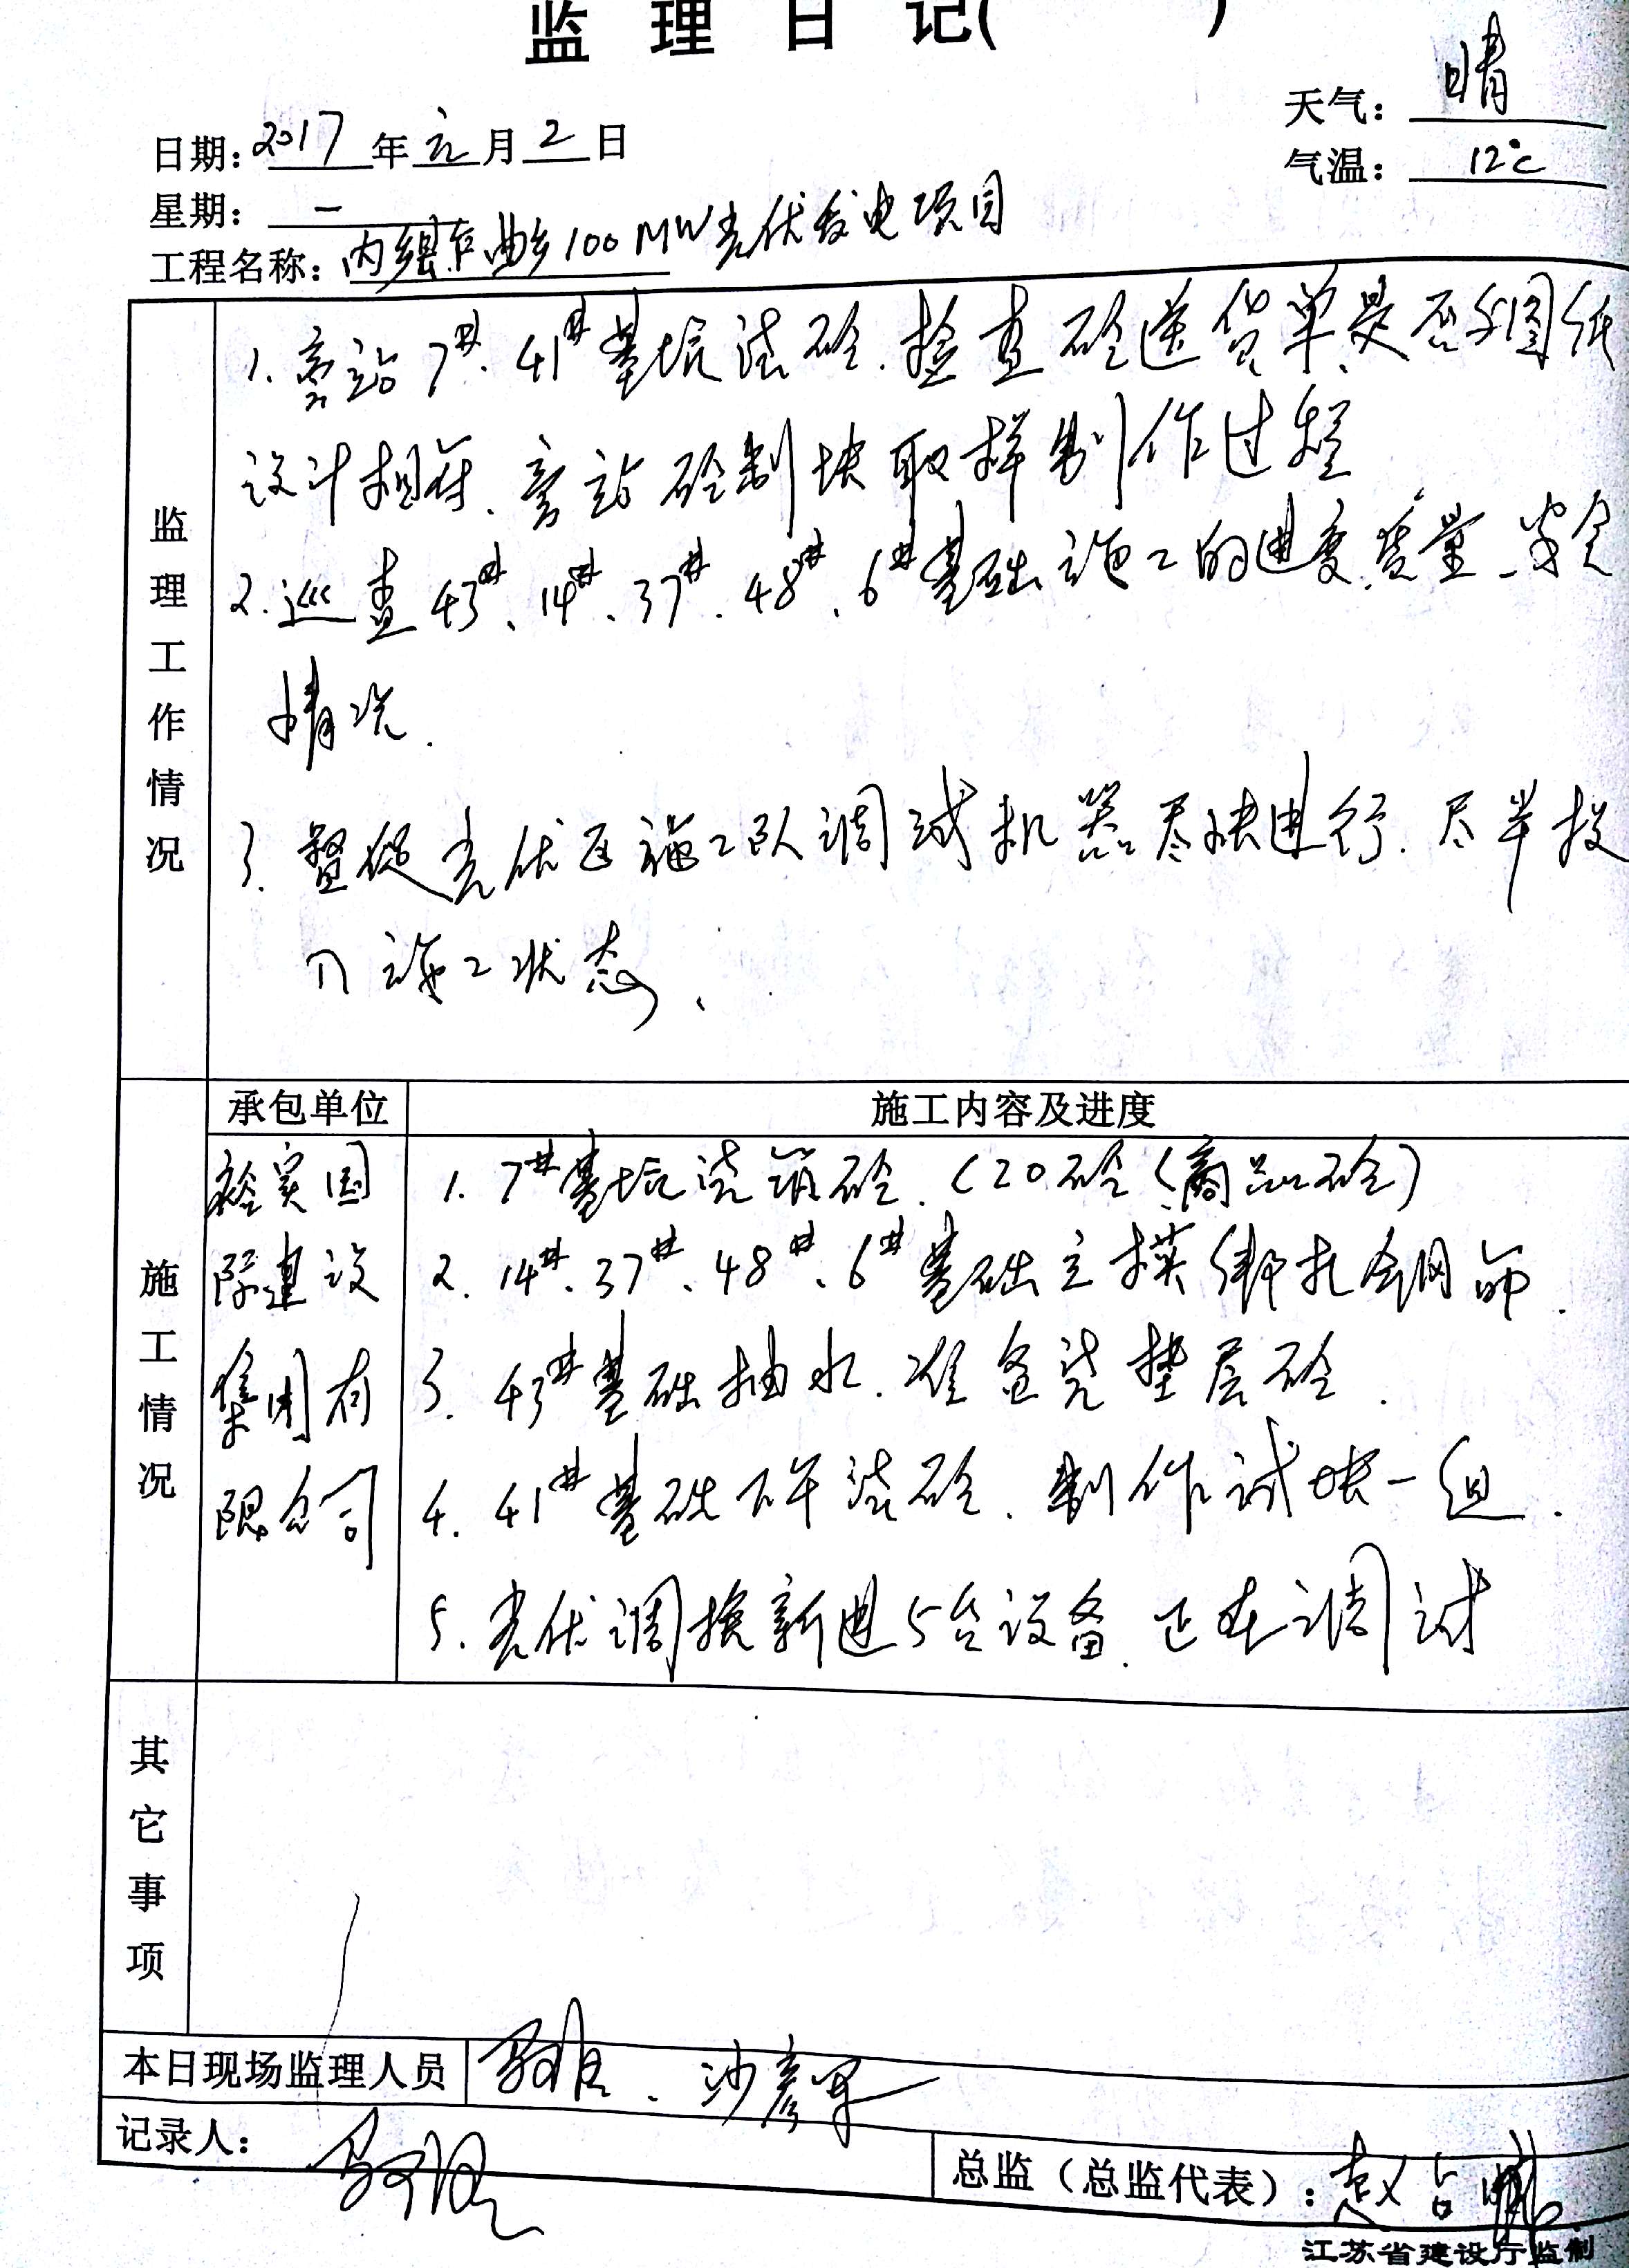 监 理 日 记( )
天气：晴
日期：2017年元月2日
气温：12℃
星期：一
工程名称：内乡县乍曲乡100MW光伏发电项目
监理工作情况
1. 旁站7#、41#基坑浇砼.检查砼送货单是否与图纸
设计相符、旁站砼制块取样制作过程
2. 巡查43#、14#、37#、48#、6#基础施工的进度、质量、安全
情况.
3. 督促光伏区施工队调试机器尽快进行.尽早投
入施工状态、
施工情况
承包单位 施工内容及进度
裕实国
际建设
集团有
限公司
1. 7#基坑浇筑砼.C20砼(商品砼)
2. 14#、37#、48#、6#基础立模绑扎钢筋.
3. 43#基础抽水.准备浇垫层砼.
4. 41#基础下午浇砼.制作试块一组.
5. 光伏调换新进5台设备.正在调试
其它事项
本日现场监理人员 、沙彦军
记录人：
总监（总监代表）：赵
江苏省建设厅监制